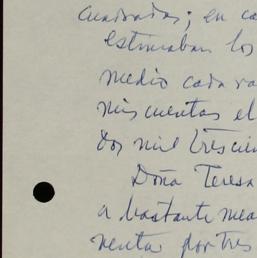 cuadradas; en ca
estimaban los
medio cada va
mis cuentas el
dos mil trescien
Doña Teresa
a bastante mea
venta por tres